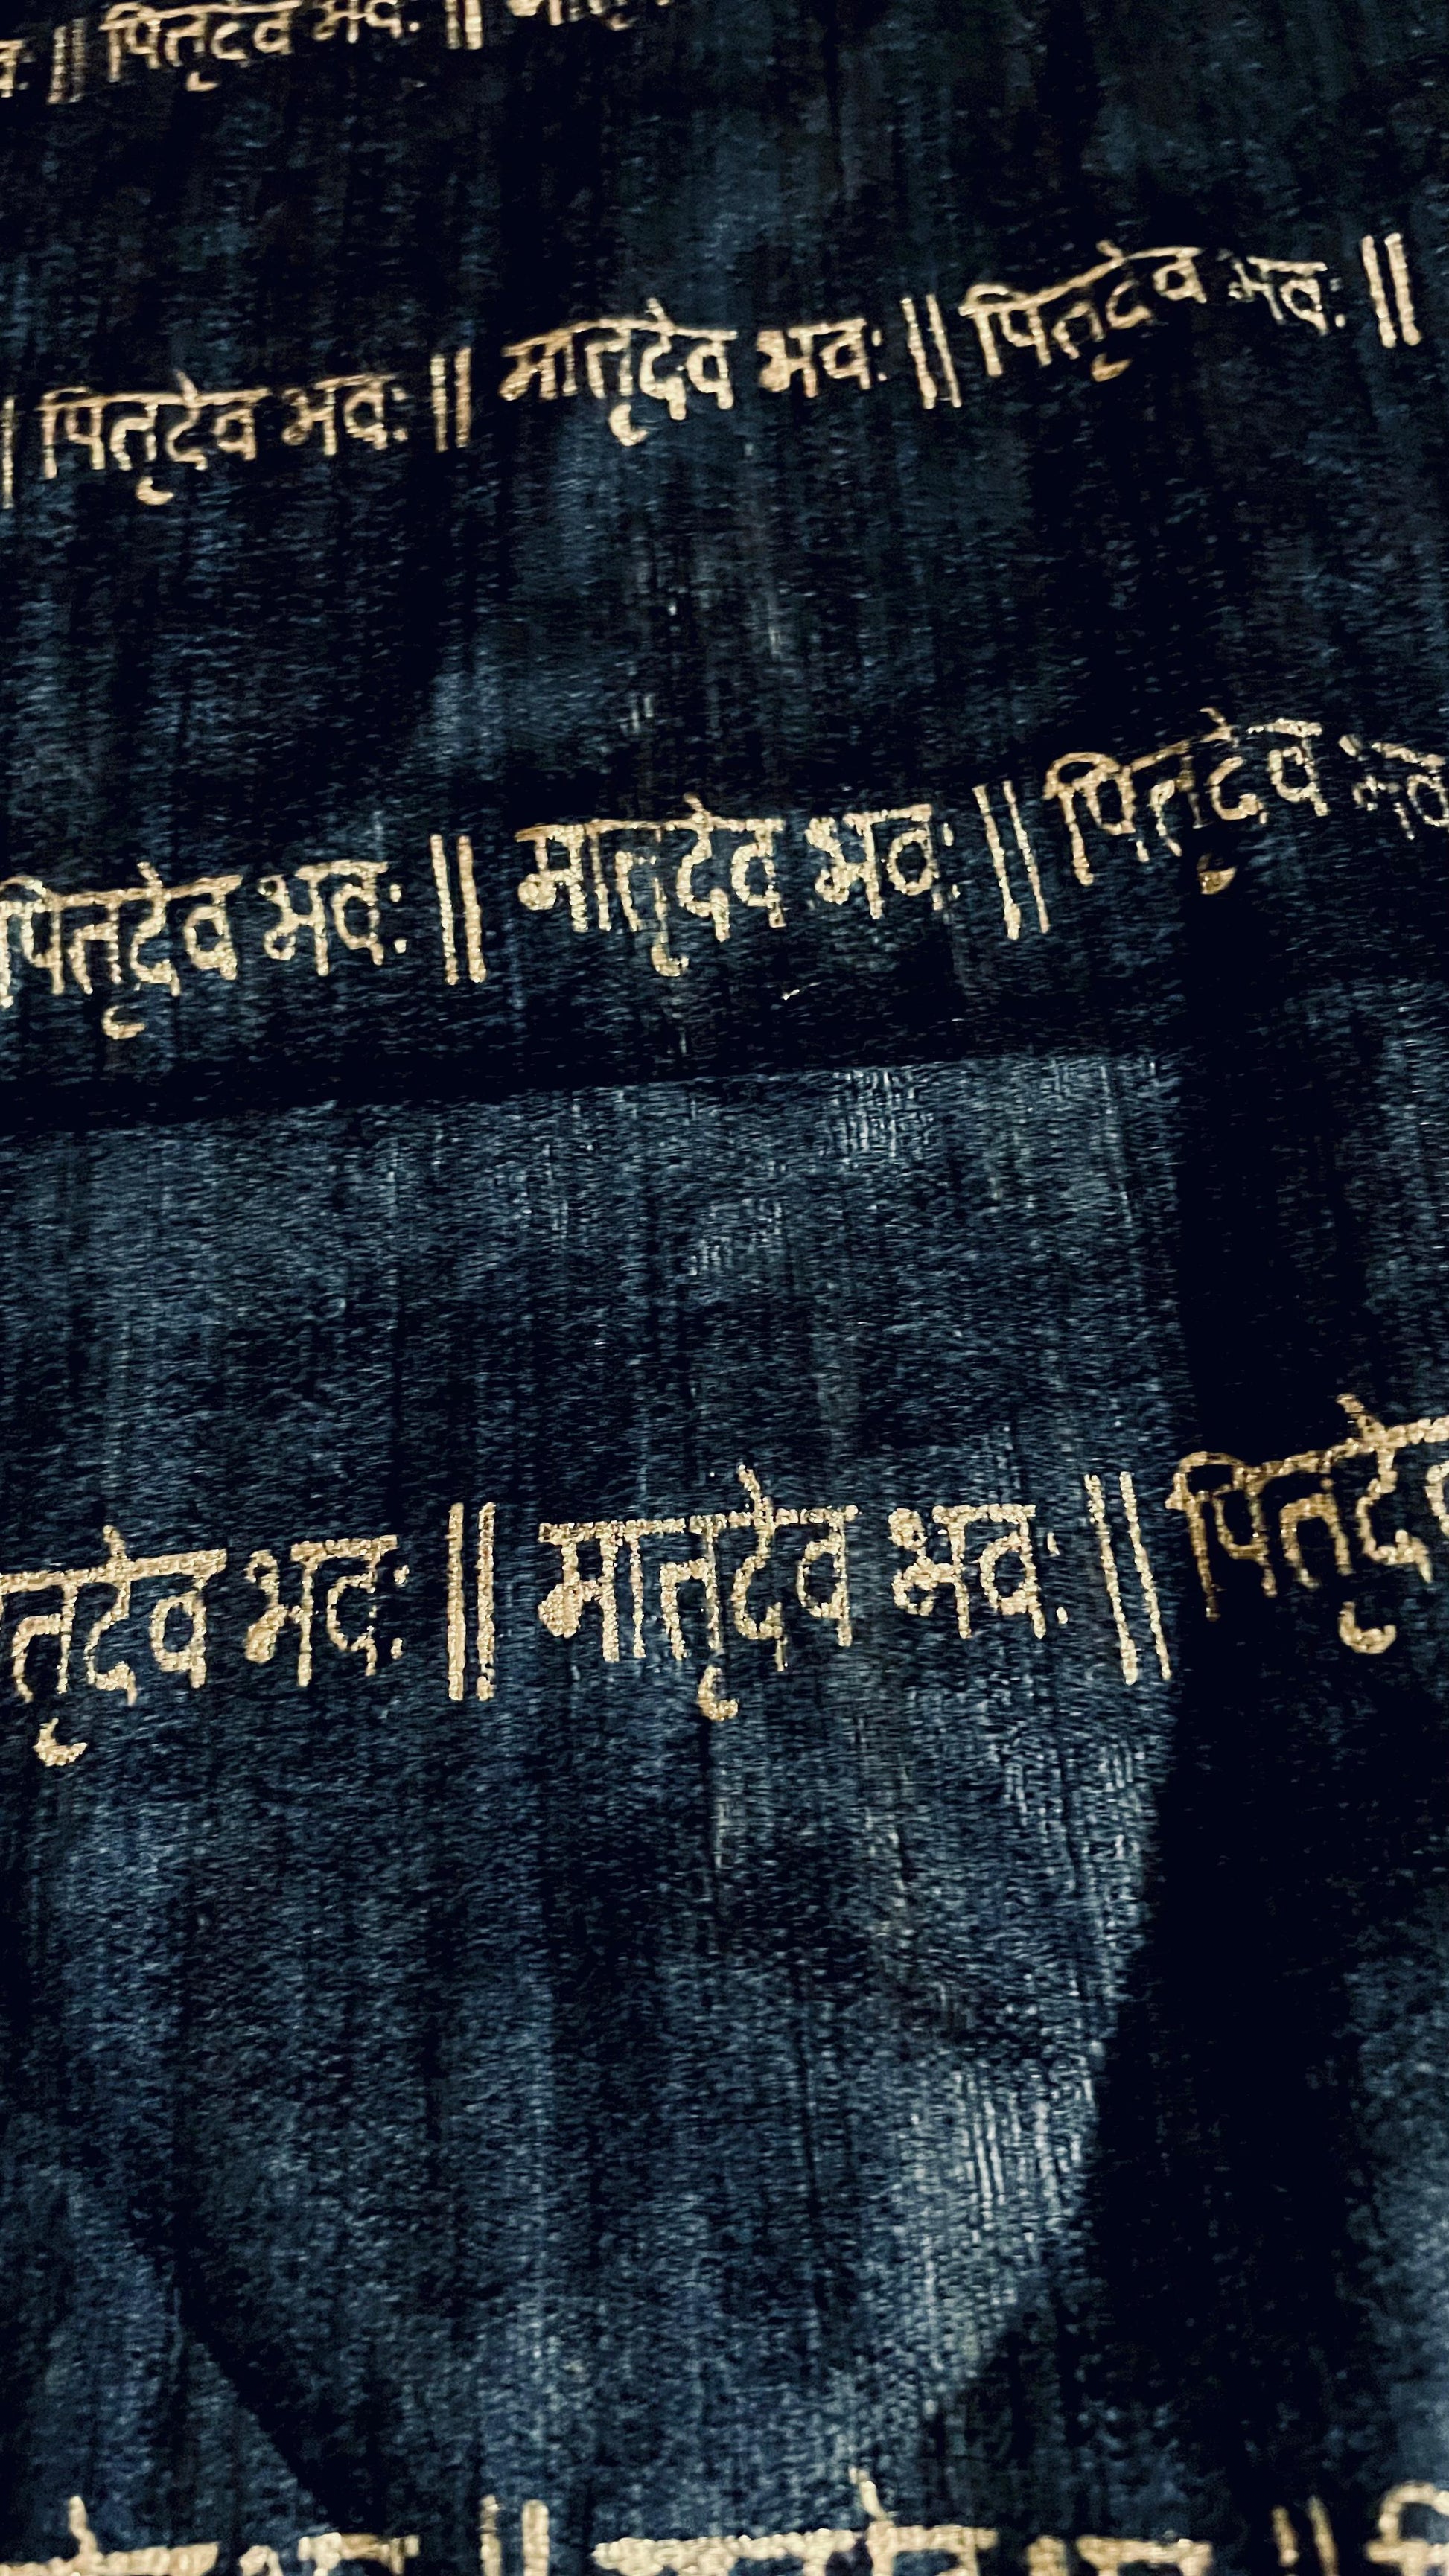 पितृदेव भवः ||
पितृदेव भवः || मातृदेव भवः || पितृदेव भवः ||
पितृदेव भवः || मातृदेव भवः || पितृदेव
भवः || मातृदेव भवः ||